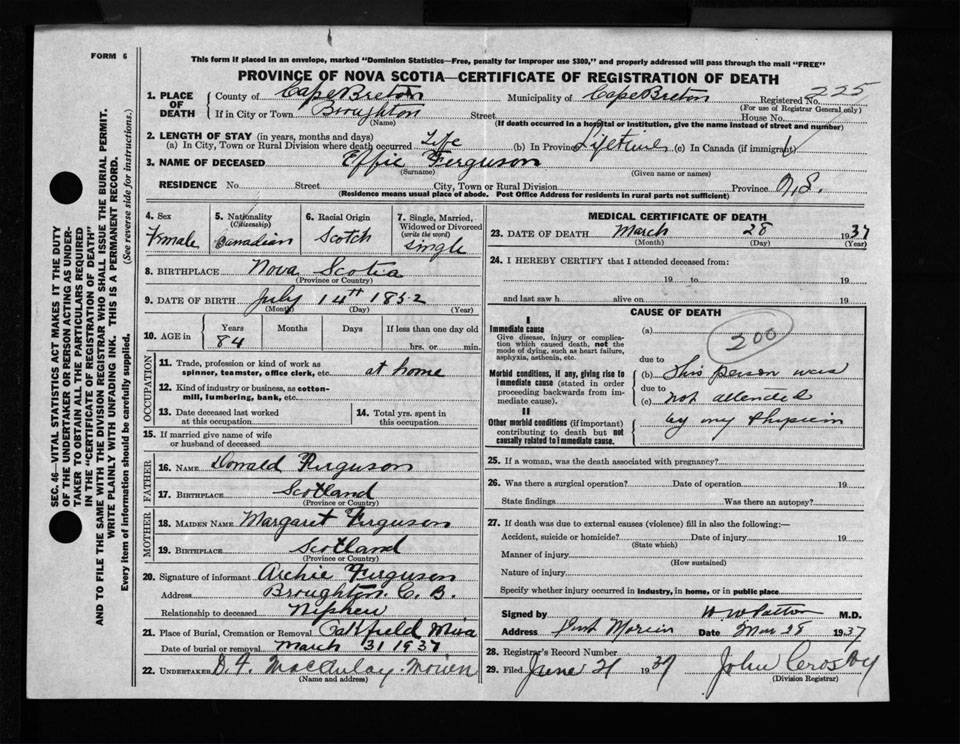 FORM 6
This form if placed in an envelope, marked "Dominion Statistics—Free, penalty for improper use $300," and properly addressed will pass through the mail "FREE"
PROVINCE OF NOVA SCOTIA—CERTIFICATE OF REGISTRATION OF DEATH
SEC. 46—VITAL STATISTICS ACT MAKES IT THE DUTY
OF THE UNDERTAKER OR PERSON ACTING AS UNDER-
TAKER TO OBTAIN ALL THE PARTICULARS REQUIRED
IN THE "CERTIFICATE OF REGISTRATION OF DEATH"
AND TO FILE THE SAME WITH THE DIVISION REGISTRAR WHO SHALL ISSUE THE BURIAL PERMIT.
WRITE PLAINLY WITH UNFADING INK. THIS IS A PERMANENT RECORD.
Every item of information should be carefully supplied. (See reverse side for instructions.)
1. PLACE OF DEATH
County of Cape Breton Municipality of Cape Breton Registered No. 225
(For use of Registrar General only)
If in City or Town Broughton Street House No.
(Name) (If death occurred in a hospital or institution, give the name instead of street and number)
2. LENGTH OF STAY (in years, months and days)
(a) In City, Town or Rural Division where death occurred Life (b) In Province Lifetime (c) In Canada (if immigrant)
3. NAME OF DECEASED Effie Ferguson
(Surname) (Given name or names)
RESIDENCE No. Street City, Town or Rural Division Province N.S.
(Residence means usual place of abode. Post Office Address for residents in rural parts not sufficient)
4. Sex Female
5. Nationality (Citizenship) Canadian
6. Racial Origin Scotch
7. Single, Married, Widowed or Divorced (write the word) single
8. BIRTHPLACE Nova Scotia
(Province or Country)
9. DATE OF BIRTH July 14th 1852
(Month) (Day) (Year)
10. AGE in Years 84 Months Days If less than one day old
hrs. or min.
OCCUPATION
11. Trade, profession or kind of work as
spinner, teamster, office clerk, etc. at home
12. Kind of industry or business, as cotton-
mill, lumbering, bank, etc.
13. Date deceased last worked
at this occupation
14. Total yrs. spent in
this occupation
15. If married give name of wife
or husband of deceased
FATHER
16. NAME Donald Ferguson
17. BIRTHPLACE Scotland
(Province or Country)
MOTHER
18. MAIDEN NAME Margaret Ferguson
19. BIRTHPLACE Scotland
(Province or Country)
20. Signature of informant Archie Ferguson
Address Broughton C. B.
Relationship to deceased Nephew
21. Place of Burial, Cremation or Removal Mira
Date of burial or removal March 31 1937
22. UNDERTAKER MacAulay
(Name and address)
MEDICAL CERTIFICATE OF DEATH
23. DATE OF DEATH March 28 1937
(Month) (Day) (Year)
24. I HEREBY CERTIFY that I attended deceased from:
19 to 19
and last saw h alive on 19
CAUSE OF DEATH
I
Immediate cause
Give disease, injury or complica-
tion which caused death, not the
mode of dying, such as heart failure,
asphyxia, asthenia, etc.
(a) 200
due to
Morbid conditions, if any, giving rise to
immediate cause (stated in order
proceeding backwards from im-
mediate cause).
(b) This person was
due to
(c) not attended
II
Other morbid conditions (if important)
contributing to death but not
causally related to immediate cause.
by any
25. If a woman, was the death associated with pregnancy?
26. Was there a surgical operation? Date of operation 19
State findings Was there an autopsy?
27. If death was due to external causes (violence) fill in also the following:—
Accident, suicide or homicide? Date of injury 19
(State which)
Manner of injury
(How sustained)
Nature of injury
Specify whether injury occurred in industry, in home, or in public place
Signed by W W Patton M.D.
Address Port Morien Date Mar 28 1937
28. Registrar's Record Number
29. Filed June 21 1937 John Crosby
(Division Registrar)